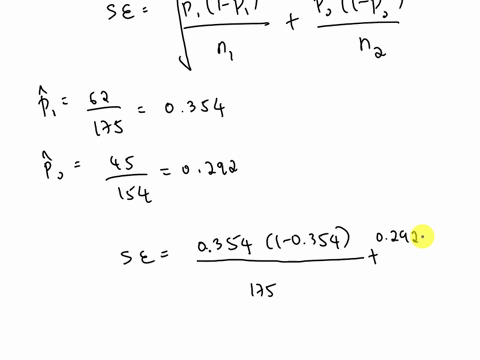 SE = √ p₁(1-p₁) / n₁ + p₂(1-p₂) / n₂
p̂₁ = 62 / 175 = 0.354
p̂₂ = 45 / 154 = 0.292
SE = 0.354 (1-0.354) / 175 + 0.292